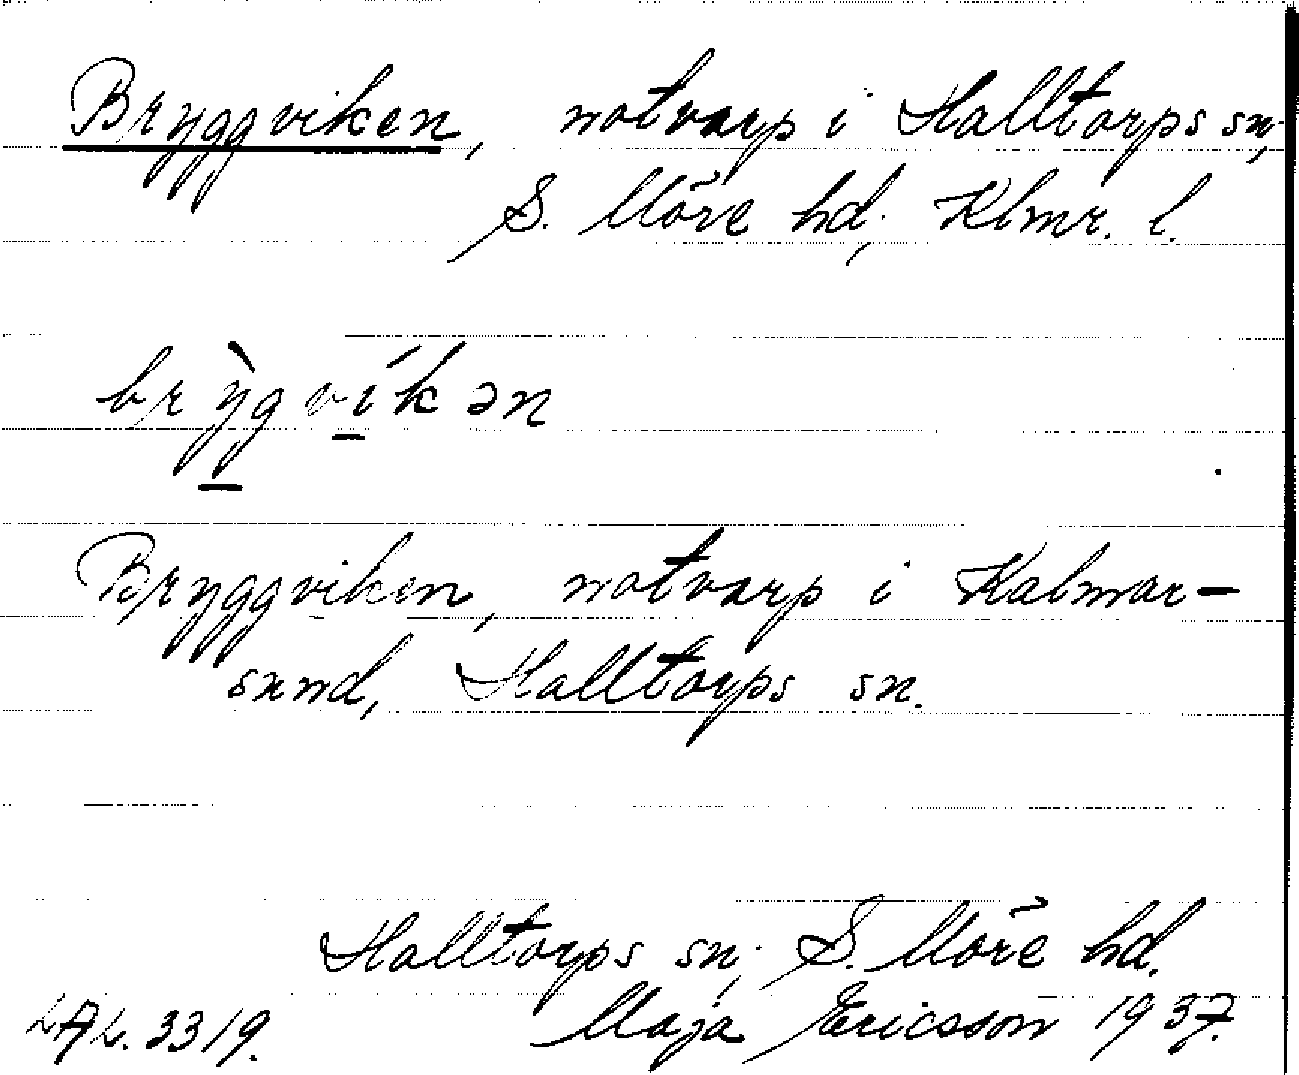 Bryggviken, notvarp i Halltorps sn,
S. Möre hd, Klmr. l.
brỳgvíkən
Bryggviken, notvarp i Kalmar-
sund, Halltorps sn.
Halltorps sn, S. Möre hd.
LAL. 3319. Maja Ericsson 1937.